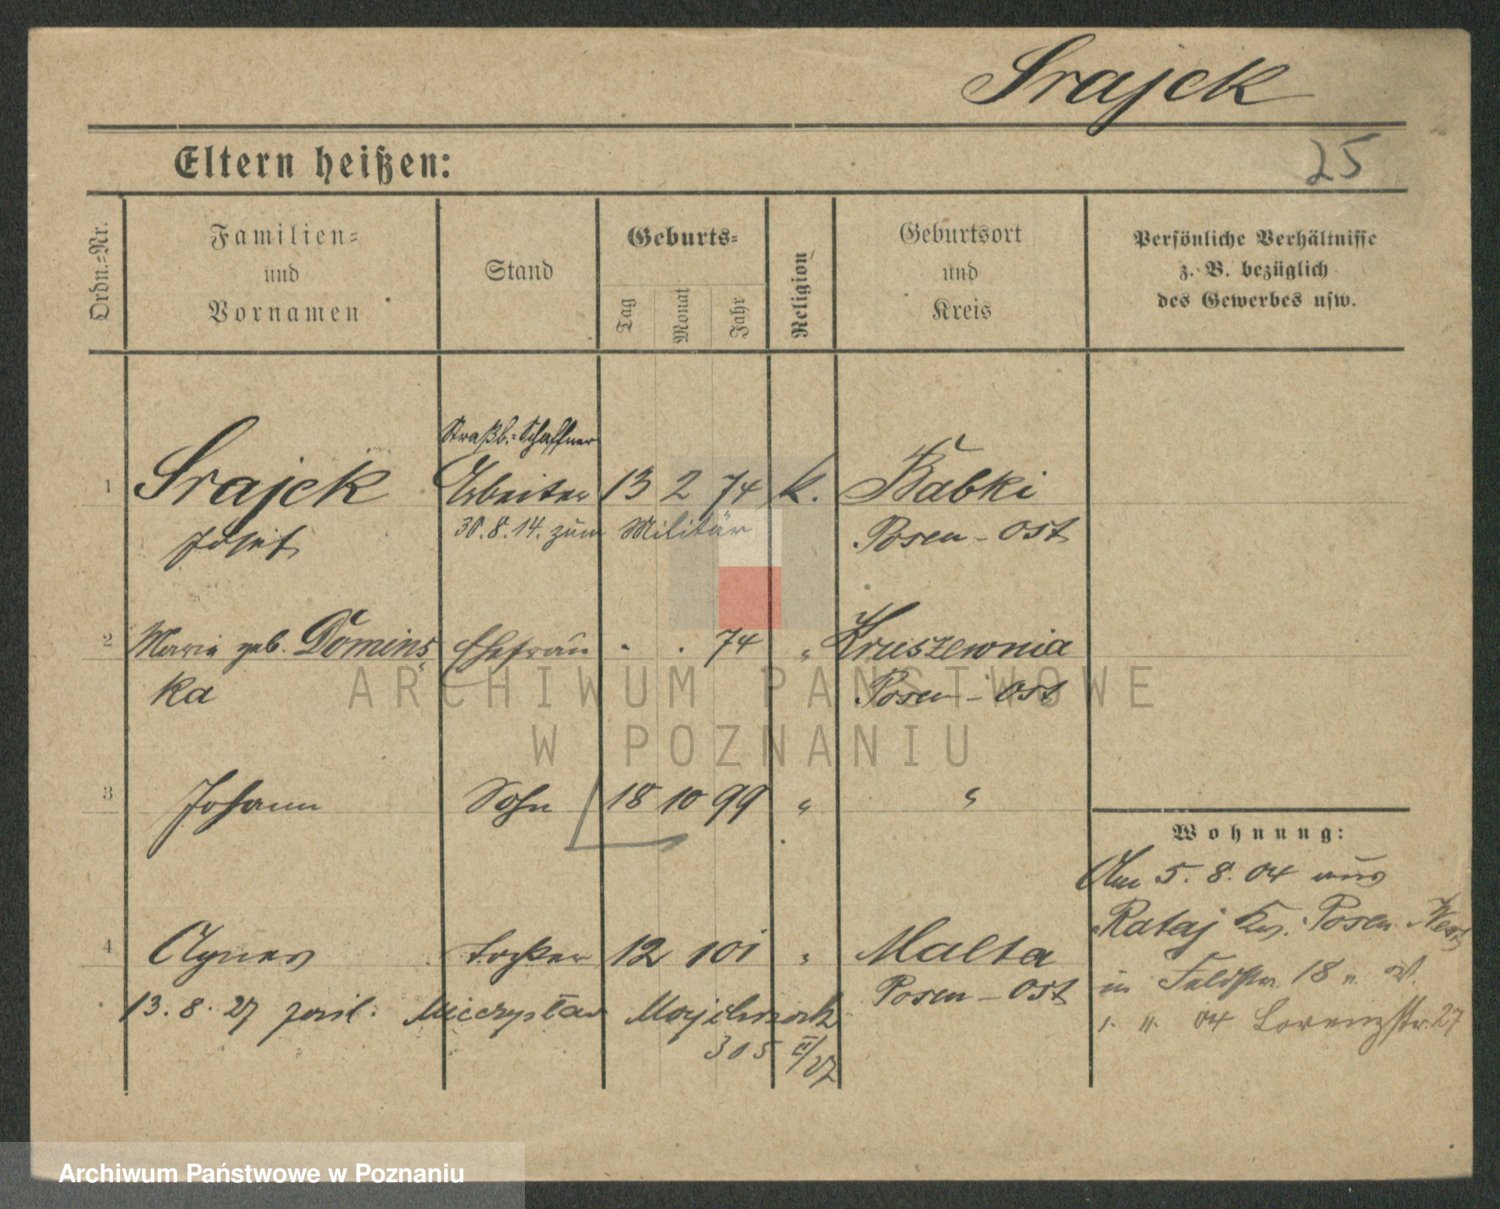 Srajek
Eltern heißen:
25
Ordn.-Nr.
Familien-
und
Vornamen
Stand
Geburts-
Tag
Monat
Jahr
Religion
Geburtsort
und
Kreis
Persönliche Verhältnisse
z. B. bezüglich
des Gewerbes usw.
Straßb.-Schaffner
1 Srajek Arbeiter 13 2 74 k. Babki
Josef 30.8.14. zum Militär Posen-Ost
2 Marie geb. Domins Ehefrau " " 74 " Kruszewnia
ka Posen-Ost
3 Johann Sohn 18 10 99 " "
Wohnung:
Am 5.8.04 aus
4 Agnes Tochter 12 10 1 " Malta
Rataj Kr. Posen West
Posen-Ost
in Feldstr. 18
13.8.27 Mieczysław
04 Lorenzstr. 27
305 II/27
ARCHIWUM PAŃSTWOWE
W POZNANIU
Archiwum Państwowe w Poznaniu